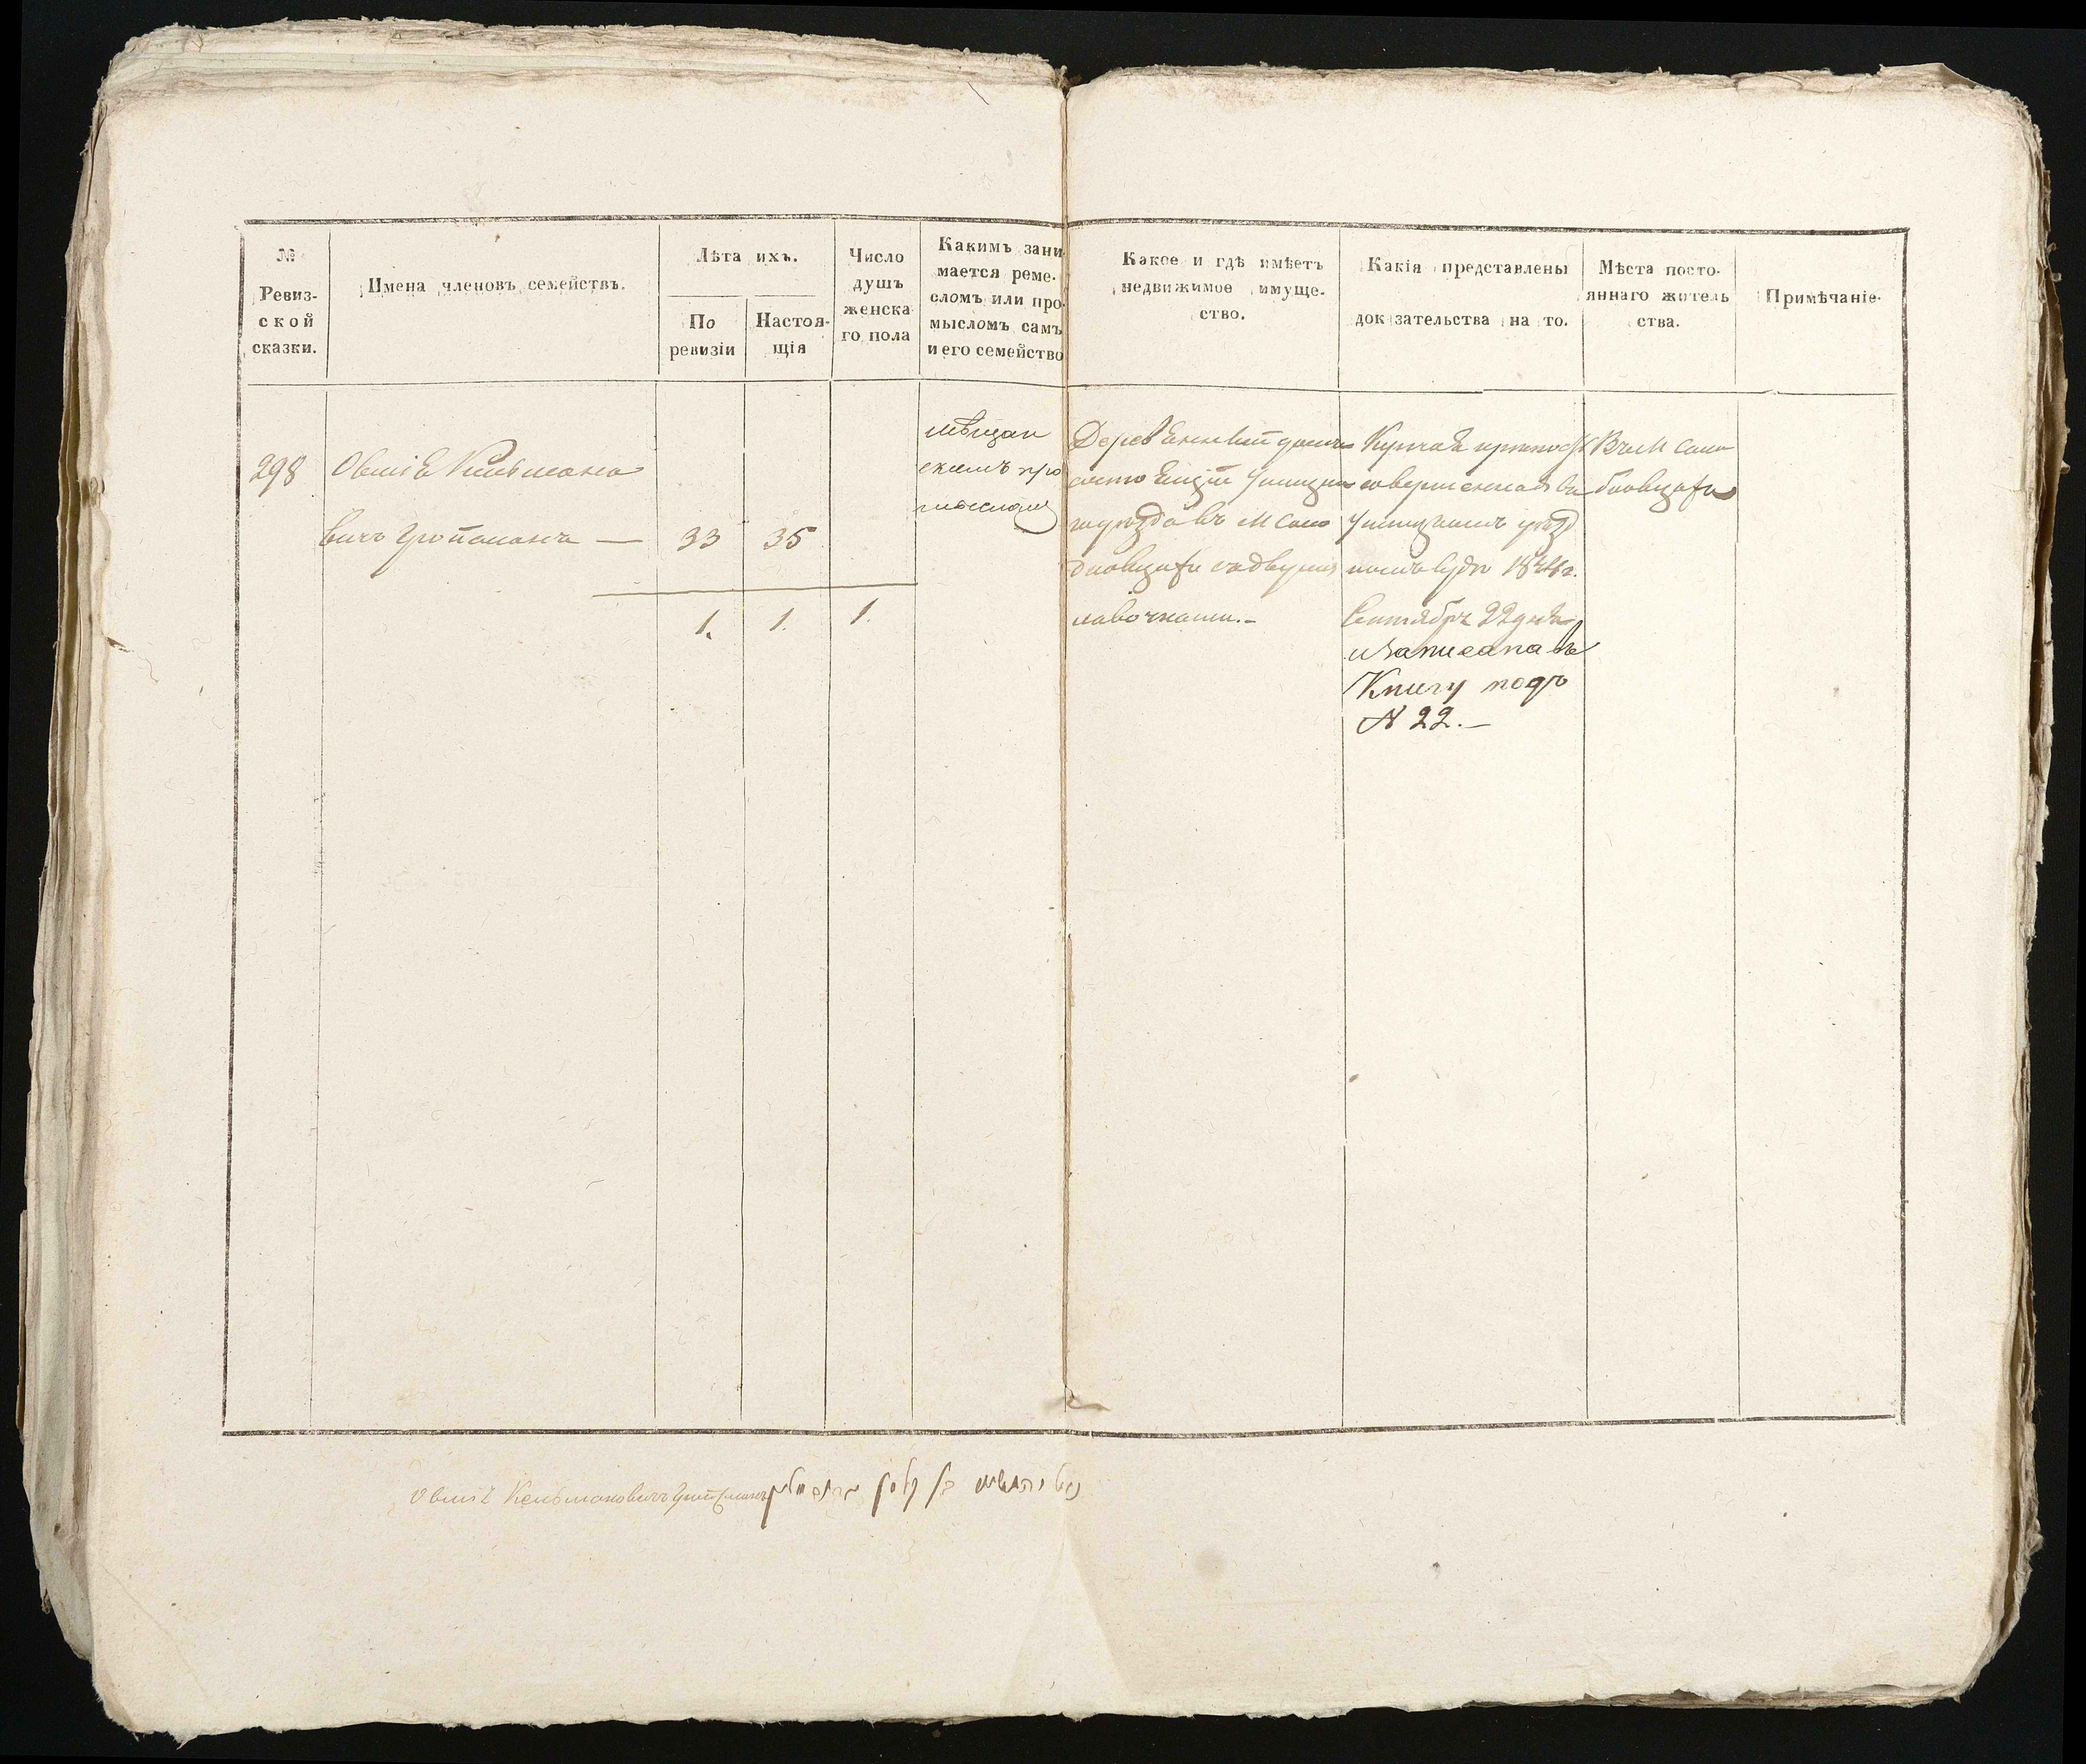 №
Ревиз-
ской
сказки.
Имена членовъ семействъ.
Лѣта ихъ.
По
ревизіи
Настоя-
щія
Число
душъ
женска
го пола
Какимъ зани
мается реме-
сломъ или про
мысломъ самъ
и его семейство
Какое и гдѣ имѣетъ
недвижимое имуще-
ство.
Какія представлены
доказательства на то.
Мѣста посто-
яннаго житель
ства.
Примѣчаніе.
298
Овшіе Кельмано
вичъ
— 33 35
1. 1. 1.
мѣщан
скимъ про
мысломъ
Деревенный домъ
состоящій Ушицка
го уѣзда въ М Соло
с двумя
лавочками.-
Купчая крѣпость
совершенная въ
Ушицкомъ уѣзд
номъ судѣ 18 г.
Сентября 22 дня
и Записана въ
Книгу подъ
N 22.—
Въ М Соло
Овшіе Кельмановичъ